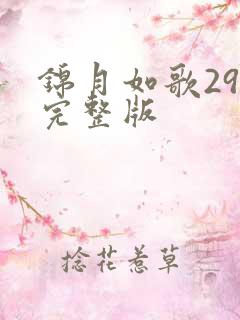 錦月如歌29
完整版
捻花惹草